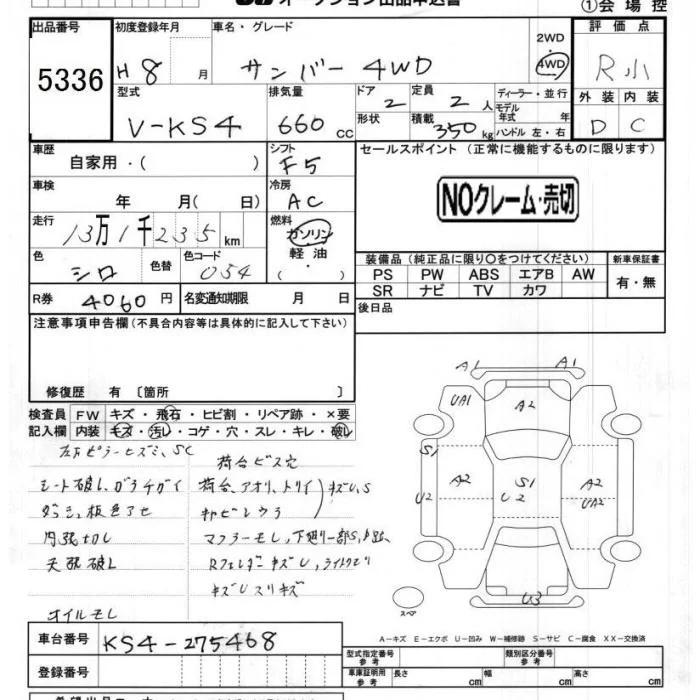 オークション出品申込書
①会場控
出品番号
5336
初度登録年月
H8 月
車名・グレード
サンバー 4WD
2WD
4WD
評価点
R小
型式
V-KS4
排気量
660 cc
ドア
2
定員
2 人
ディーラー・並行
モデル年式 年
形状
積載
350 kg
ハンドル 左・右
外装 内装
D C
車歴
自家用・( )
シフト
F5
セールスポイント (正常に機能するものに限ります)
NOクレーム・売切
車検
年 月( 日)
冷房
AC
走行
13万1千235 km
燃料
ガソリン
軽油
( ・ )
色
シロ
色替
色コード
054
装備品 (純正品に限り○をつけてください)
新車保証書
PS PW ABS エアB AW
SR ナビ TV カワ
有・無
R券
4060 円
名変通知期限 月 日
後日品
注意事項申告欄 (不具合内容等は具体的に記入して下さい)
修復歴 有 〔箇所 〕
検査員 FW キズ・飛石・ヒビ割・リペア跡・×要
記入欄 内装 キズ・汚レ・コゲ・穴・スレ・キレ・破レ
シート破レ、ガラチガイ
ダッシュ板色アセ
内張切レ
天張破レ
オイルモレ
荷台ビス穴
荷台、アオリ、トリイ キズU,S
キズUスリキズ
A1 A1
UA1 A2
S1
A2 S1 A2
U2 U2 UA2
U3
スペア
A-キズ E-エクボ U-凹み W-補修跡 S-サビ C-腐食 XX-交換済
車台番号
KS4-275468
型式指定番号
参考
類別区分番号
参考
登録番号
車庫証明用
参考
長さ cm 幅 cm 高さ cm